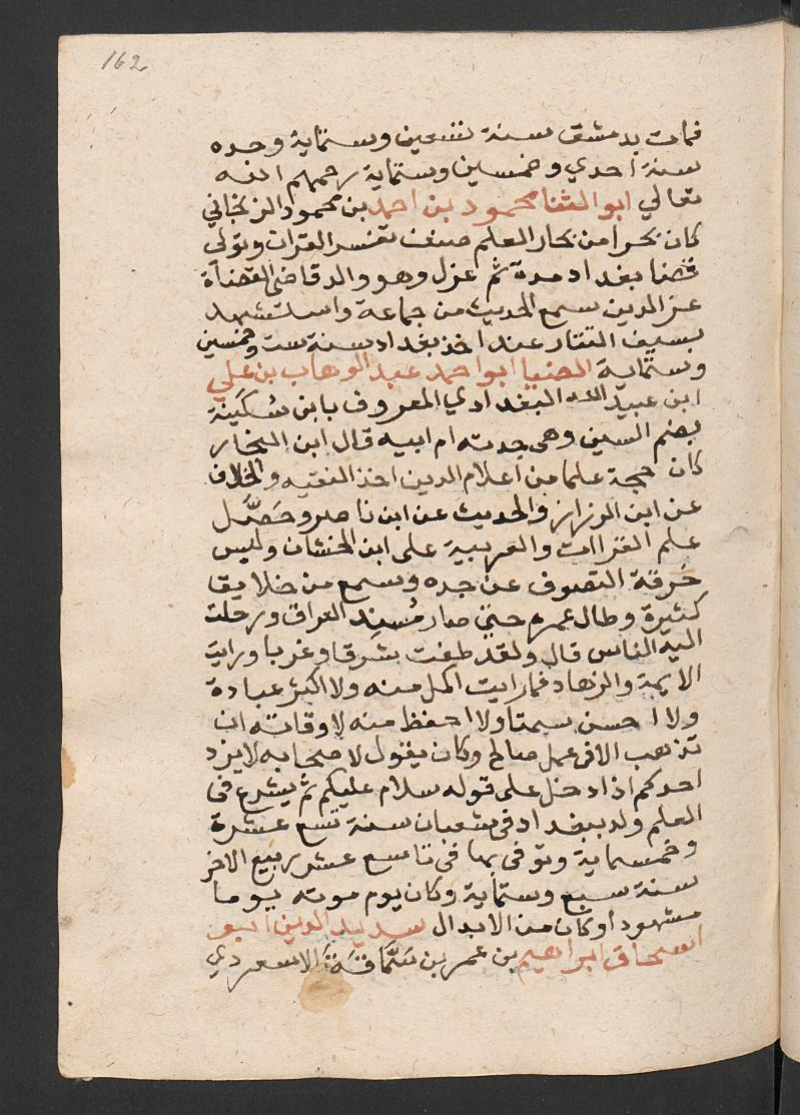 162
فمات بدمشق سنة تسعين وستماية وجده
سنة احدي وخمسين وستماية رحمهم الله
تعالي ابو الثنا محمود بن احمد بن محمود الزنجاني
كان بحرا من بحار العلم صنف تفسر القران وتولي
قضا بغداد مدة ثم عزل وهو والد قاضي القضاة
عز الدين سمع الحديث من جماعة واستشهد
بسيف التتار عند اخذ بغداد سنة ست وخمسين
وستماية الضيا ابو احمد عبد الوهاب بن علي
ابن عبيد الله البغدادي المعروف بابن سُكَينة
بضم السين وهي جدته ام ابيه قال ابن النجار
كان حجة علما من اعلام الدين اخذ الفقيه والخلاف
عن ابن الرزاز والحديث عن ابن ناصر وحَصَّل
علم القراات والعربية على ابن الخشاب ولبس
خرقة التصوف عن جده وسمع من خلايق
كثيرة وطال عمره حتى صار مُسنِد العراق ورحلت
اليه الناس قال ولقد طفت شرقا وغربا ورايت
الايمة والزهاد فما رايت اكمل منه ولا اكثر عبادة
ولا احسن سمتا ولا احفظ منه لاوقاته ان
تذهب الا في عمل صالح وكان يقول لاصحابه لا يزد
احدكم اذا دخل على قوله سلام عليكم ثم يشرع في
العلم ولد ببغداد في شعبان سنة تسع عشرة
وخمسماية وتوفي بها في تاسع عشر ربيع الاخر
سنة سبع وستماية وكان يوم موته يوما
مشهودا وكان من الابدال سديد الدين ابو
اسحاق ابراهيم بن عمر بن سَمَّاقَة الاسعردي